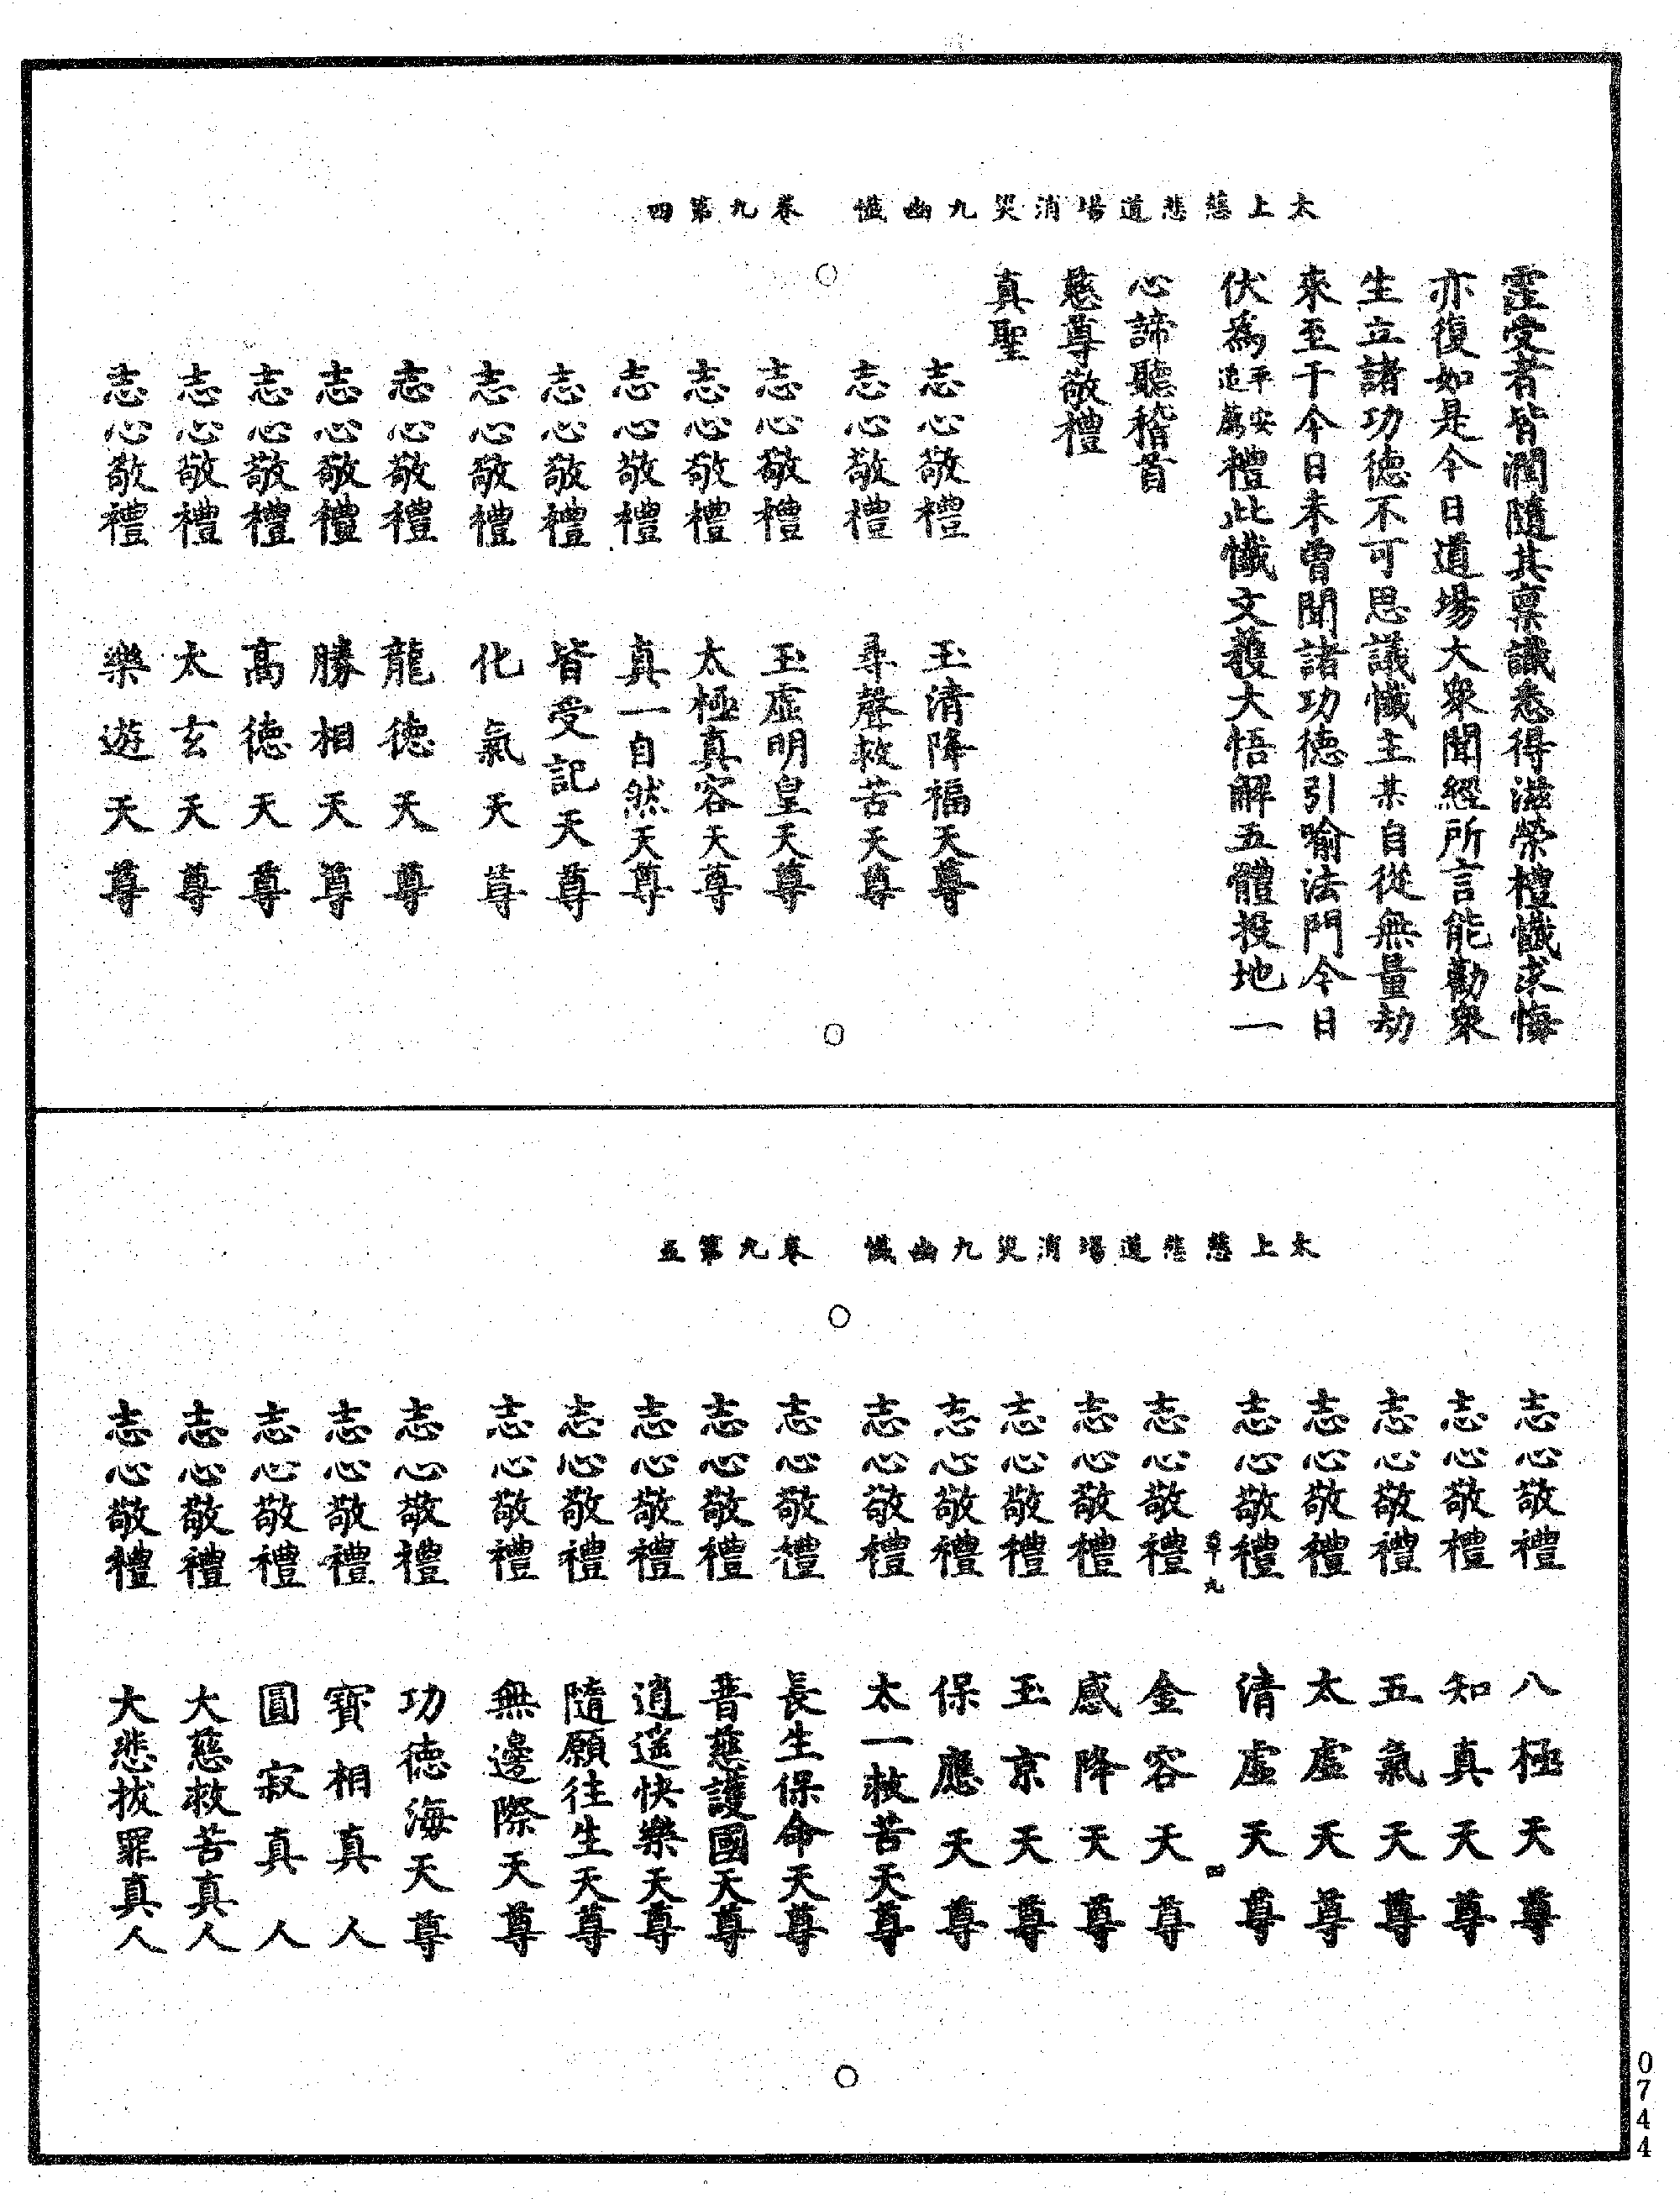 太上慈悲道場消災九幽懺　卷九第四
霔受者皆潤隨其稟識悉得滋榮禮懺求悔
亦復如是今日道場大衆聞經所言能勸衆
生立諸功德不可思議懺主某自從無量劫
來至于今日未曾聞諸功德引喻法門今日
伏為平安追薦禮此懺文獲大悟解五體投地一
心諦聽稽首
慈尊敬禮
真聖
志心敬禮　玉清降福天尊
志心敬禮　尋聲救苦天尊
志心敬禮　玉虛明皇天尊
志心敬禮　太極真容天尊
志心敬禮　真一自然天尊
志心敬禮　皆受記天尊
志心敬禮　化氣天尊
志心敬禮　龍德天尊
志心敬禮　勝相天尊
志心敬禮　高德天尊
志心敬禮　太玄天尊
志心敬禮　樂遊天尊
太上慈悲道場消災九幽懺　卷九第五
志心敬禮　八極天尊
志心敬禮　知真天尊
志心敬禮　五氣天尊
志心敬禮　太虛天尊
志心敬禮　清虛天尊
九　四
志心敬禮　金容天尊
志心敬禮　感降天尊
志心敬禮　玉京天尊
志心敬禮　保應天尊
志心敬禮　太一救苦天尊
志心敬禮　長生保命天尊
志心敬禮　普慈護國天尊
志心敬禮　逍遙快樂天尊
志心敬禮　隨願往生天尊
志心敬禮　無邊際天尊
志心敬禮　功德海天尊
志心敬禮　寶相真人
志心敬禮　圓寂真人
志心敬禮　大慈救苦真人
志心敬禮　大悲拔罪真人
0744